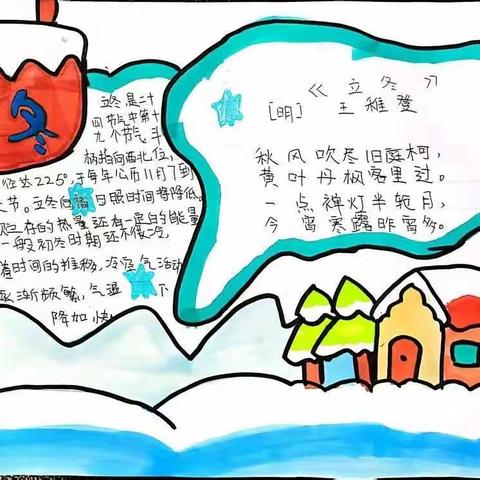 冬
立冬是二十
四节气中第十
九个节气,斗
柄指向西北位,
径达225°,于每年公历11月7到
节。立冬后 日照时间将降低。
存的热量还有一定的能量
一般初冬时期还不很冷,
着时间的推移,冷空气活动
逐渐频繁,气温 下
降加快
《立冬》
[明] 王稚登
秋风吹尽旧庭柯,
黄叶丹枫客里过。
一点禅灯半轮月,
今宵寒露昨宵多。